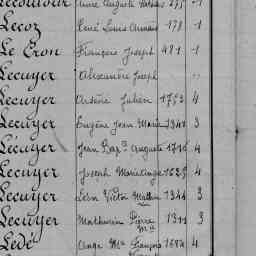 Anne Auguste 275 1
Lecoz René Louis Armand 178 1
Le Cron François Joseph 481 1
Lecuyer Alexandre Joseph "
Lecuyer Arsène Julien 1752 4
Lecuyer Eugène Jean Marie 1341 3
Lecuyer Jean Bapte Auguste 1716 4
Lecuyer Joseph 1625 4
Lecuyer Léon Victor Mathurin 1344 3
Lecuyer Mathurin Pierre Mie 1311 3
Lédé Ange Mie François 1684 4